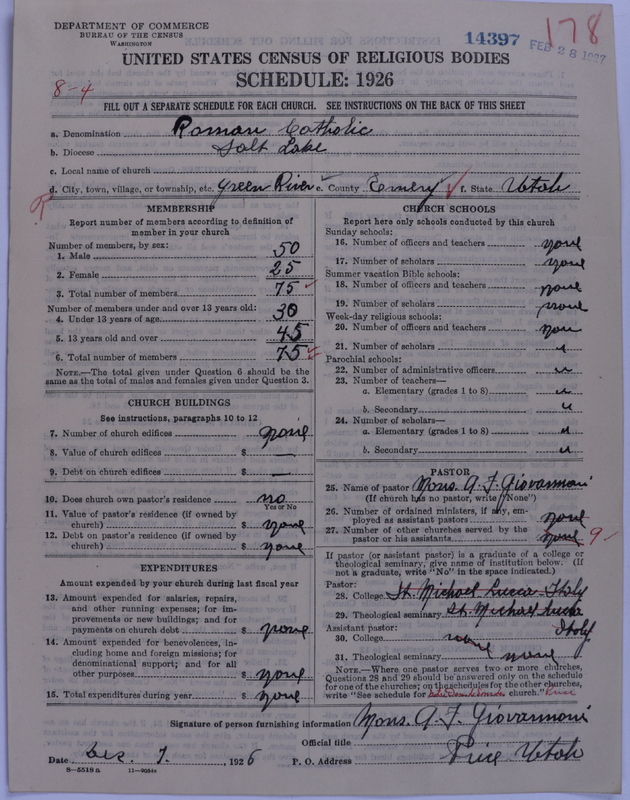 DEPARTMENT OF COMMERCE
BUREAU OF THE CENSUS
WASHINGTON
14397
FEB 28 1927
178
UNITED STATES CENSUS OF RELIGIOUS BODIES
SCHEDULE: 1926
8-4
FILL OUT A SEPARATE SCHEDULE FOR EACH CHURCH. SEE INSTRUCTIONS ON THE BACK OF THIS SHEET
a. Denomination Roman Catholic
b. Diocese Salt Lake
c. Local name of church
d. City, town, village, or township, etc. Green River e. County Emery f. State Utah
R
MEMBERSHIP
Report number of members according to definition of
member in your church
Number of members, by sex:
1. Male 50
2. Female 25
3. Total number of members 75
Number of members under and over 13 years old:
4. Under 13 years of age 30
5. 13 years old and over 45
6. Total number of members 75
NOTE.—The total given under Question 6 should be the
same as the total of males and females given under Question 3.
CHURCH BUILDINGS
See instructions, paragraphs 10 to 12
7. Number of church edifices none
8. Value of church edifices $ —
9. Debt on church edifices $ —
10. Does church own pastor's residence no
Yes or No
11. Value of pastor's residence (if owned by
church) $ none
12. Debt on pastor's residence (if owned by
church) $ none
EXPENDITURES
Amount expended by your church during last fiscal year
13. Amount expended for salaries, repairs,
and other running expenses; for im-
provements or new buildings; and for
payments on church debt $ none
14. Amount expended for benevolences, in-
cluding home and foreign missions; for
denominational support; and for all
other purposes $ none
15. Total expenditures during year $ none
CHURCH SCHOOLS
Report here only schools conducted by this church
Sunday schools:
16. Number of officers and teachers none
17. Number of scholars none
Summer vacation Bible schools:
18. Number of officers and teachers none
19. Number of scholars none
Week-day religious schools:
20. Number of officers and teachers none
21. Number of scholars "
Parochial schools:
22. Number of administrative officers "
23. Number of teachers—
a. Elementary (grades 1 to 8) "
b. Secondary "
24. Number of scholars—
a. Elementary (grades 1 to 8) "
b. Secondary "
PASTOR
25. Name of pastor Mons. A. F. Giovannoni
(If church has no pastor, write "None")
26. Number of ordained ministers, if any, em-
ployed as assistant pastors none
27. Number of other churches served by the
pastor or his assistants none 9
If pastor (or assistant pastor) is a graduate of a college or
theological seminary, give name of institution below. (If
not a graduate, write "No" in the space indicated.)
Pastor:
28. College St. Michael Lucca Italy
29. Theological seminary St. Michael Lucca
Italy
Assistant pastor:
30. College none
31. Theological seminary none
NOTE.—Where one pastor serves two or more churches,
Questions 28 and 29 should be answered only on the schedule
for one of the churches; on the schedules for the other churches,
write "See schedule for church." Price
Signature of person furnishing information Mons. A. F. Giovannoni
Official title
Date Dec. 7. 1926 P. O. Address Price Utah
8—5518 a 11—9054a